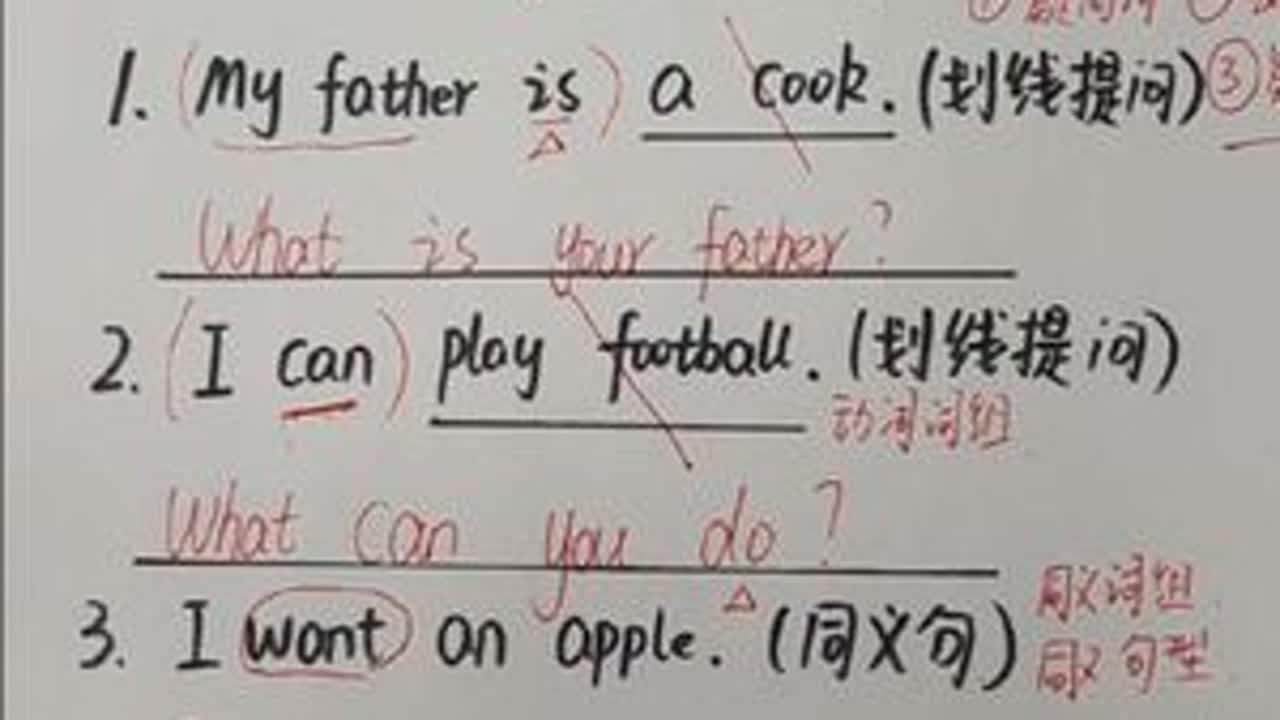 1. (My father is) a cook. (划线提问) ③
What is your father?
2. (I can) play football. (划线提问)
动词词组
What can you do?
3. I want an apple. (同义句)
同义词组
同义句型